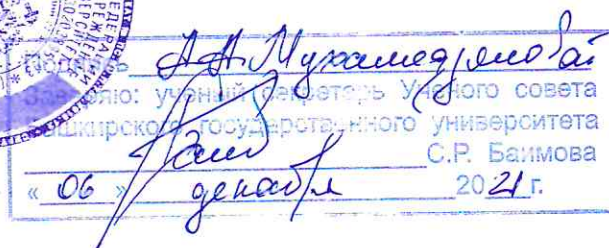 Подпись А.А. Мухамедьяновой
Заверяю: ученый секретарь Ученого совета
Башкирского государственного университета
С.Р. Баимова
« 06 » декабря 2021 г.